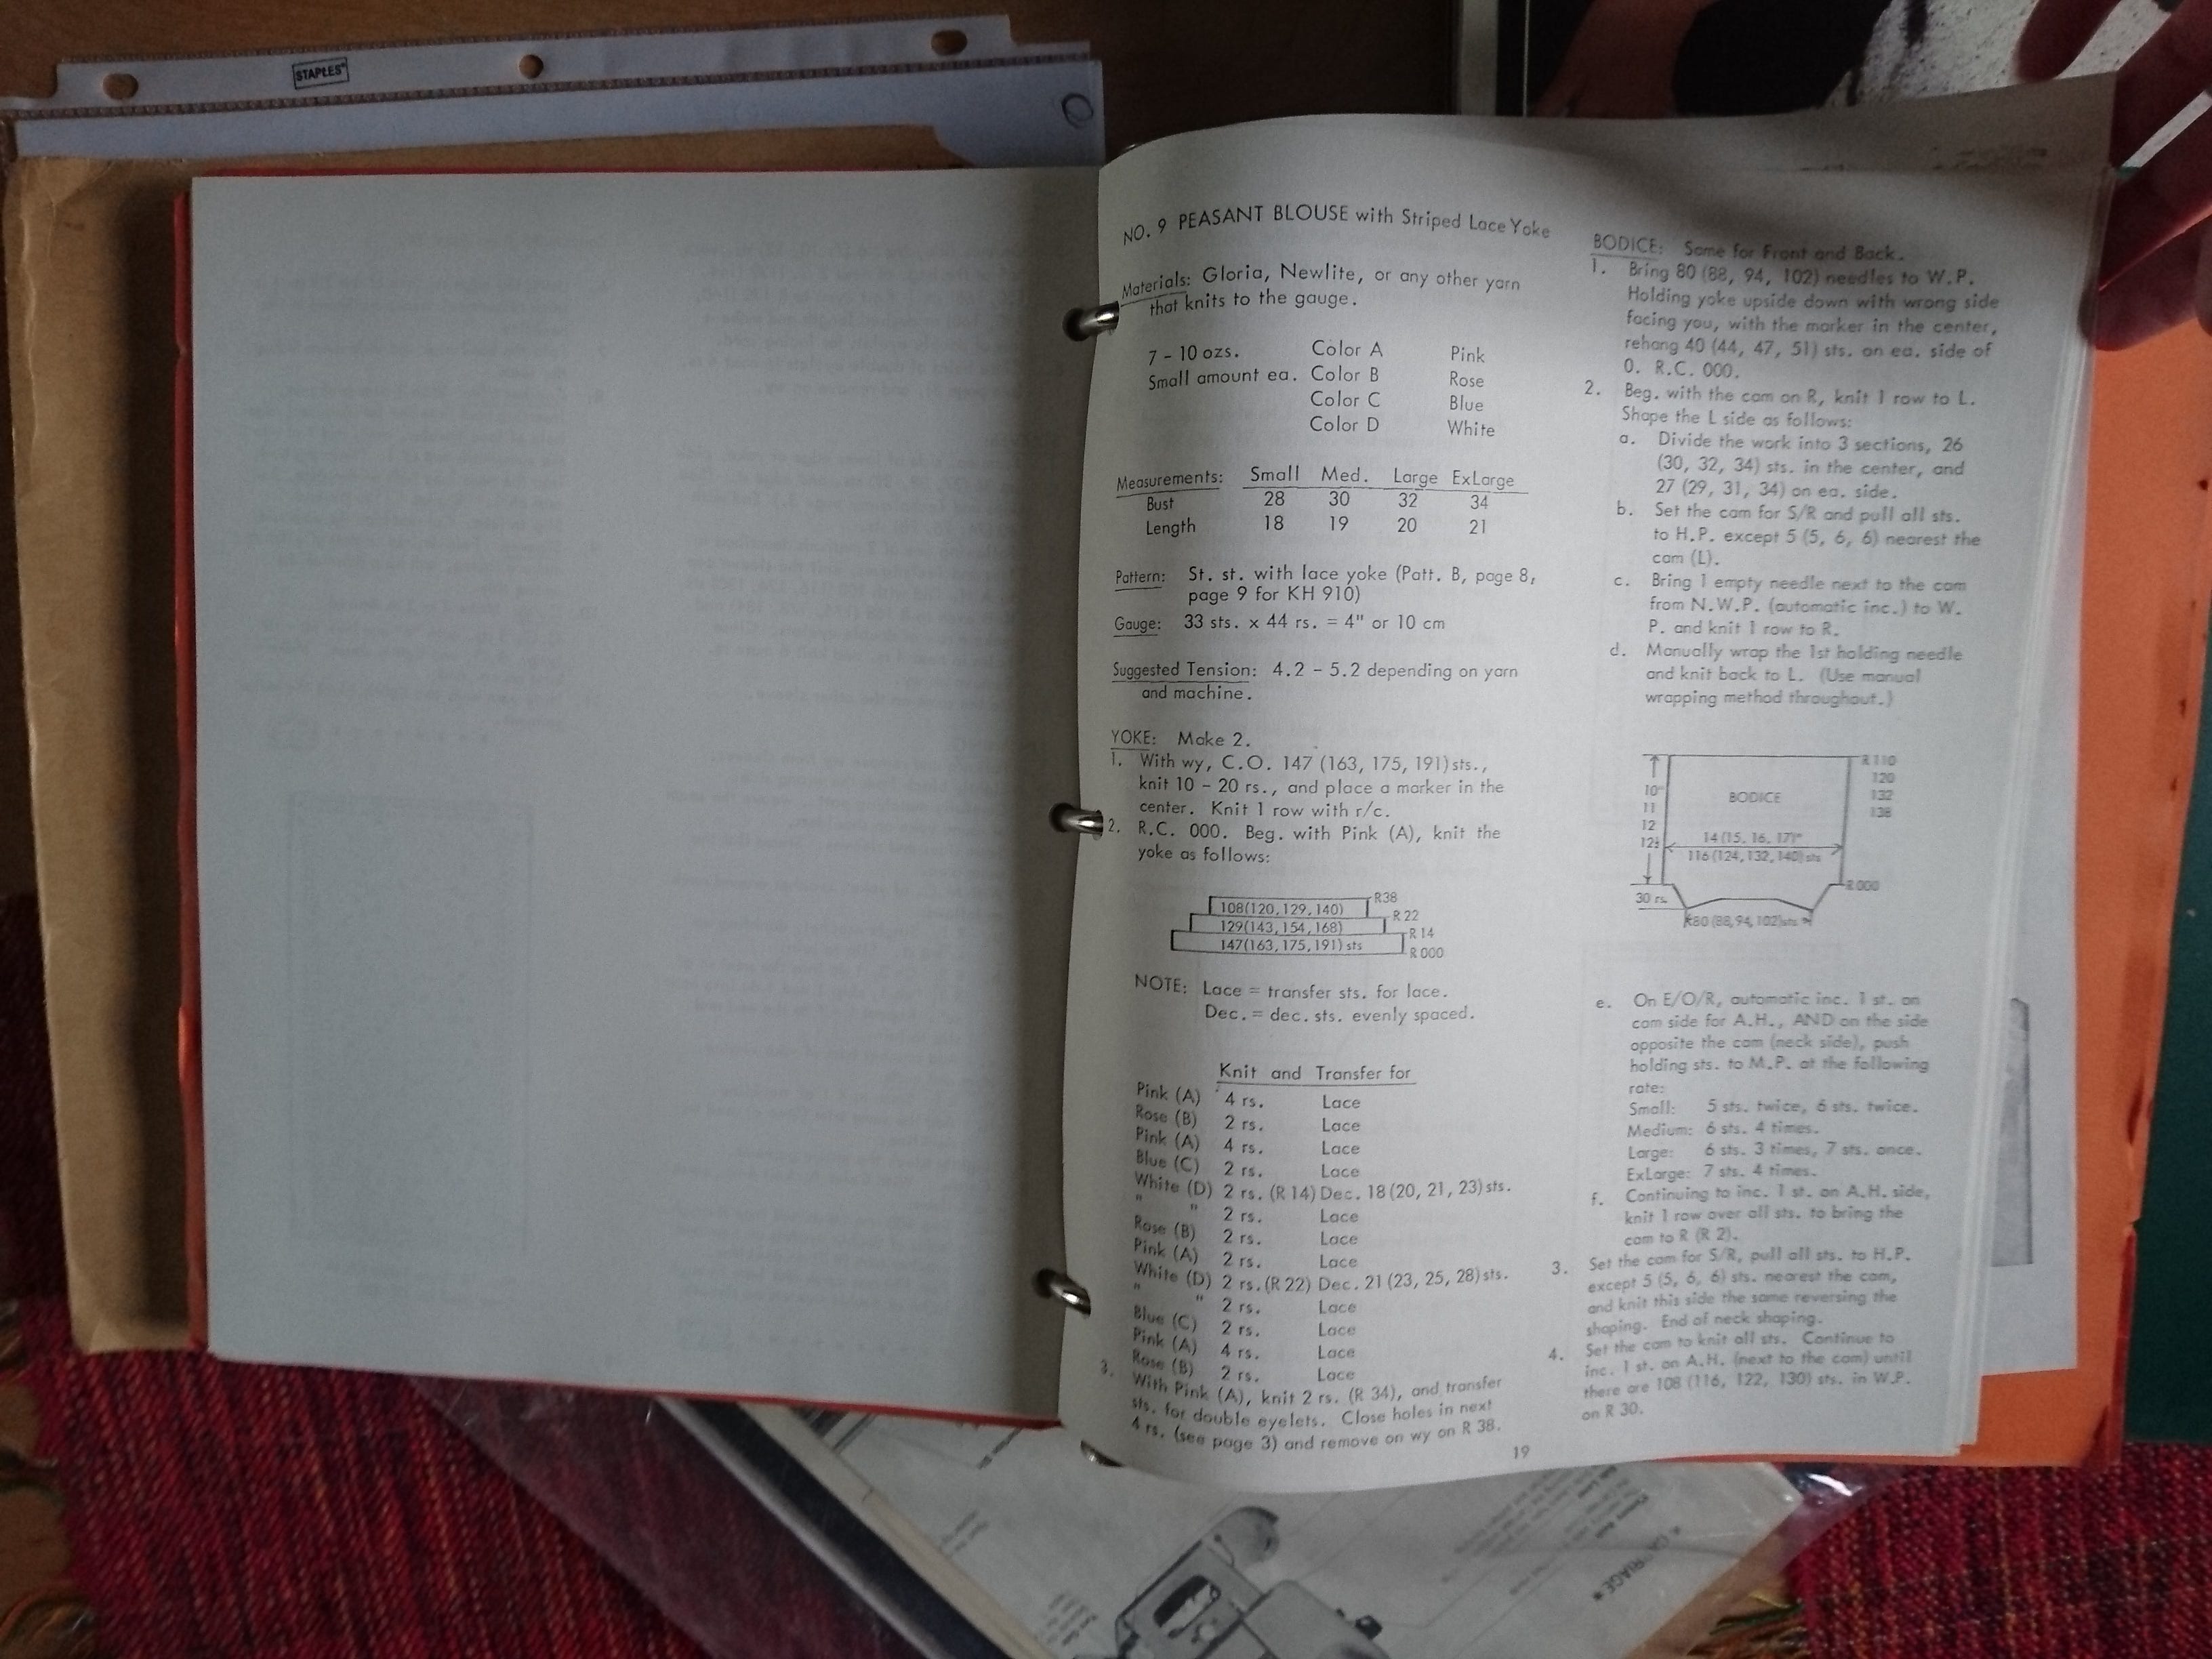 STAPLES
NO. 9 PEASANT BLOUSE with Striped Lace Yoke
Materials: Gloria, Newlite, or any other yarn
that knits to the gauge.
7 - 10 ozs. Color A Pink
Small amount ea. Color B Rose
Color C Blue
Color D White
Measurements: Small Med. Large ExLarge
Bust 28 30 32 34
Length 18 19 20 21
Pattern: St. st. with lace yoke (Patt. B, page 8,
page 9 for KH 910)
Gauge: 33 sts. x 44 rs. = 4" or 10 cm
Suggested Tension: 4.2 - 5.2 depending on yarn
and machine.
YOKE: Make 2.
1. With wy, C.O. 147 (163, 175, 191) sts.,
knit 10 - 20 rs., and place a marker in the
center. Knit 1 row with r/c.
2. R.C. 000. Beg. with Pink (A), knit the
yoke as follows:
108(120,129,140) R38
129(143,154,168) R 22
147(163,175,191) sts R 14
R 000
NOTE: Lace = transfer sts. for lace.
Dec. = dec. sts. evenly spaced.
Knit and Transfer for
Pink (A) 4 rs. Lace
Rose (B) 2 rs. Lace
Pink (A) 4 rs. Lace
Blue (C) 2 rs. Lace
White (D) 2 rs. (R 14) Dec. 18 (20, 21, 23) sts.
" " 2 rs. Lace
Rose (B) 2 rs. Lace
Pink (A) 2 rs. Lace
White (D) 2 rs. (R 22) Dec. 21 (23, 25, 28) sts.
" " 2 rs. Lace
Blue (C) 2 rs. Lace
Pink (A) 4 rs. Lace
Rose (B) 2 rs. Lace
3. With Pink (A), knit 2 rs. (R 34), and transfer
sts. for double eyelets. Close holes in next
4 rs. (see page 3) and remove on wy on R 38.
BODICE: Same for Front and Back.
1. Bring 80 (88, 94, 102) needles to W.P.
Holding yoke upside down with wrong side
facing you, with the marker in the center,
rehang 40 (44, 47, 51) sts. on ea. side of
0. R.C. 000.
2. Beg. with the cam on R, knit 1 row to L.
Shape the L side as follows:
a. Divide the work into 3 sections, 26
(30, 32, 34) sts. in the center, and
27 (29, 31, 34) on ea. side.
b. Set the cam for S/R and pull all sts.
to H.P. except 5 (5, 6, 6) nearest the
cam (L).
c. Bring 1 empty needle next to the cam
from N.W.P. (automatic inc.) to W.
P. and knit 1 row to R.
d. Manually wrap the 1st holding needle
and knit back to L. (Use manual
wrapping method throughout.)
R 110
10" 120
11 BODICE 132
12 138
12½ 14 (15, 16, 17)"
116 (124, 132, 140) sts
R 000
30 rs.
80 (88, 94, 102) sts
e. On E/O/R, automatic inc. 1 st. on
cam side for A.H., AND on the side
opposite the cam (neck side), push
holding sts. to M.P. at the following
rate:
Small: 5 sts. twice, 6 sts. twice.
Medium: 6 sts. 4 times.
Large: 6 sts. 3 times, 7 sts. once.
ExLarge: 7 sts. 4 times.
f. Continuing to inc. 1 st. on A.H. side,
knit 1 row over all sts. to bring the
cam to R (R 2).
3. Set the cam for S/R, pull all sts. to H.P.
except 5 (5, 6, 6) sts. nearest the cam,
and knit this side the same reversing the
shaping. End of neck shaping.
4. Set the cam to knit all sts. Continue to
inc. 1 st. on A.H. (next to the cam) until
there are 108 (116, 122, 130) sts. in W.P.
on R 30.
19
CARRIAGE